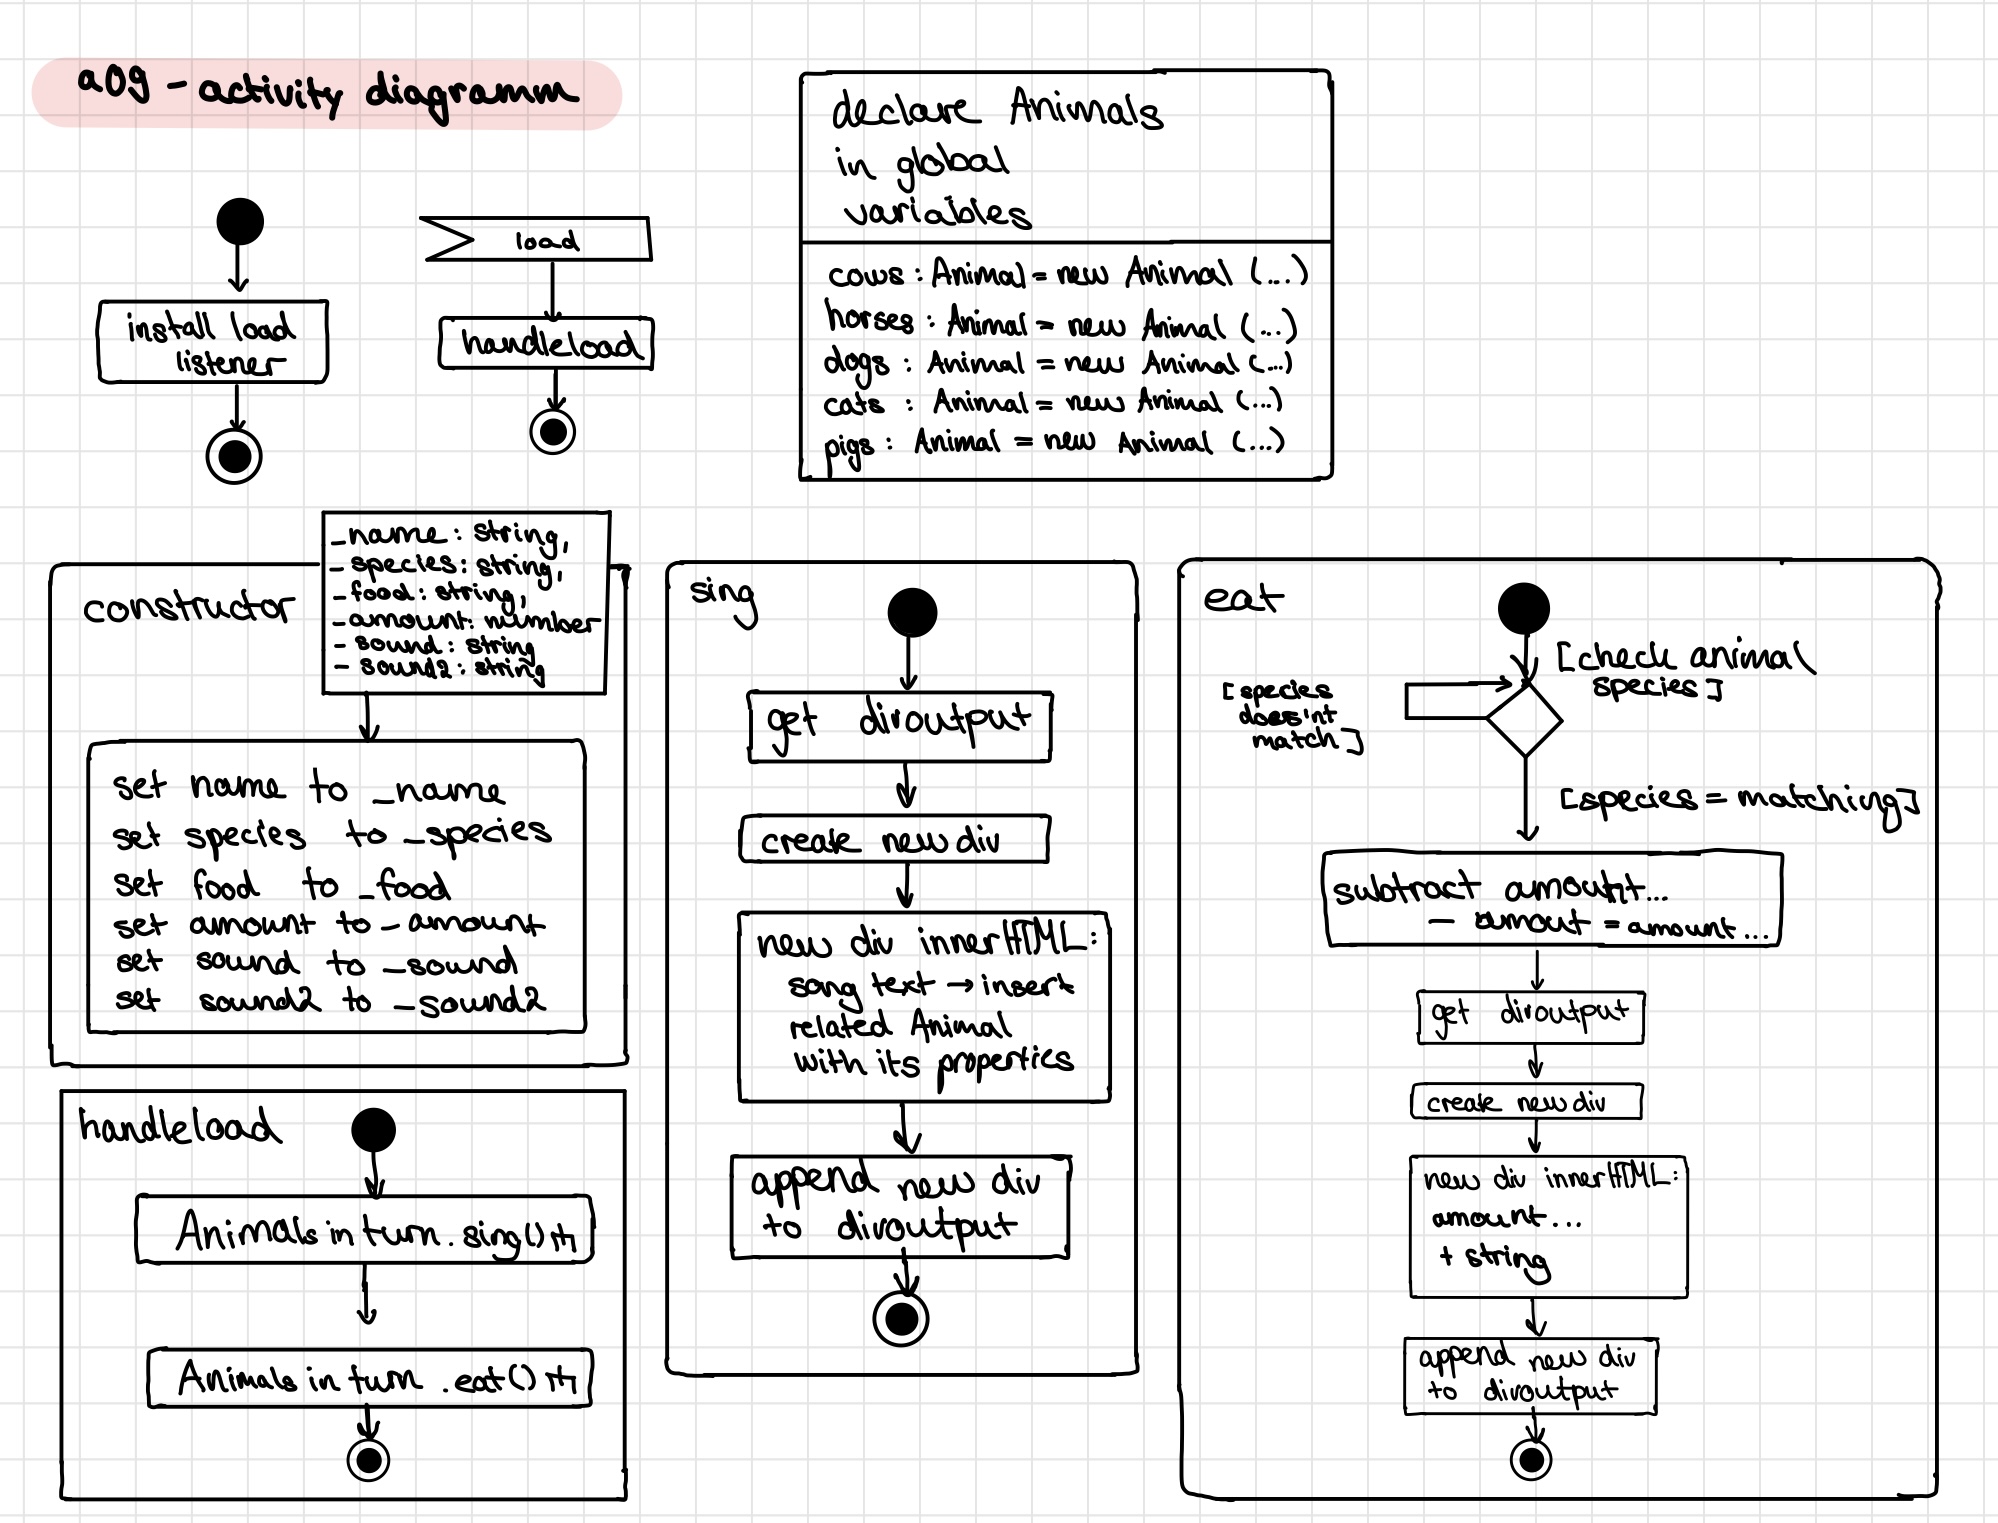 a09 - activity diagramm
install load
listener
load
handleload
declare Animals
in global
variables
cows : Animal = new Animal (...)
horses : Animal = new Animal (...)
dogs : Animal = new Animal (...)
cats : Animal = new Animal (...)
pigs : Animal = new Animal (...)
constructor
_name : string,
_species : string,
_food : string,
_amount : number
_sound : string
_sound2 : string
set name to _name
set species to _species
set food to _food
set amount to _amount
set sound to _sound
set sound2 to _sound2
handleload
Animals in turn . sing()
Animals in turn . eat()
sing
get divoutput
create new div
new div innerHTML:
song text → insert
related Animal
with its properties
append new div
to divoutput
eat
[check animal
species]
[species
does'nt
match]
[species = matching]
subtract amount...
- amout = amount...
get divoutput
create new div
new div innerHTML:
amount...
+ string
append new div
to divoutput